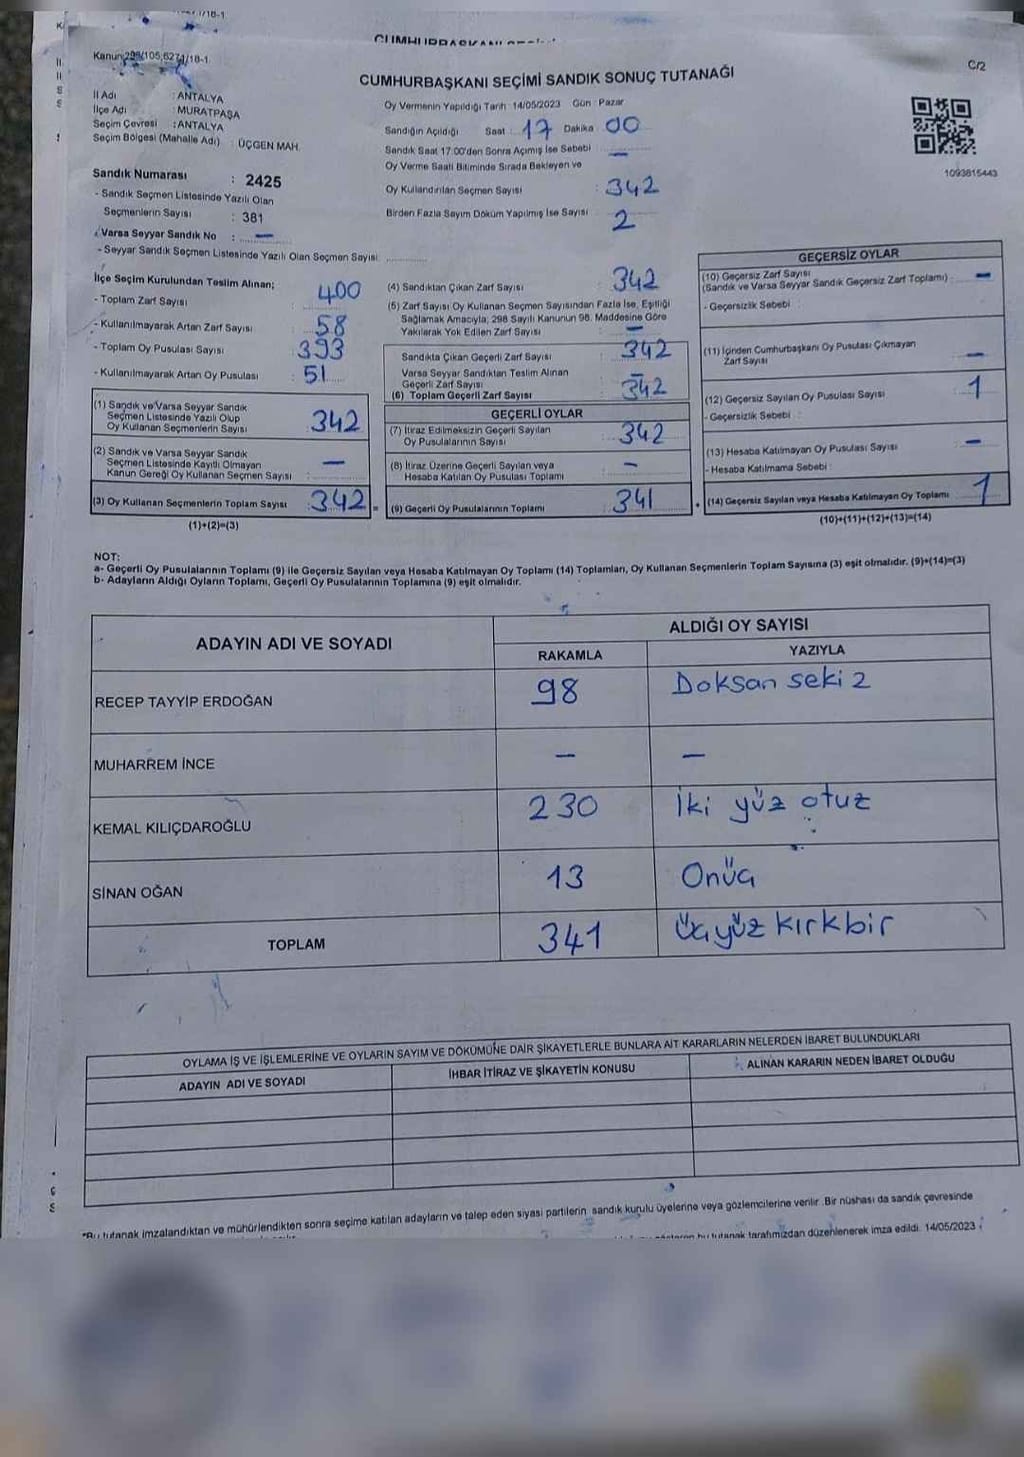 Kanun:298/105,6271/18-1
C/2
CUMHURBAŞKANI SEÇİMİ SANDIK SONUÇ TUTANAĞI
İl Adı : ANTALYA
İlçe Adı : MURATPAŞA
Seçim Çevresi : ANTALYA
Seçim Bölgesi (Mahalle Adı) : ÜÇGEN MAH.
Sandık Numarası : 2425
- Sandık Seçmen Listesinde Yazılı Olan
Seçmenlerin Sayısı : 381
Varsa Seyyar Sandık No : —
- Seyyar Sandık Seçmen Listesinde Yazılı Olan Seçmen Sayısı:
Oy Vermenin Yapıldığı Tarih :14/05/2023 Gün : Pazar
Sandığın Açıldığı Saat 17 Dakika 00
Sandık Saat 17.00'den Sonra Açımış İse Sebebi : —
Oy Verme Saati Bitiminde Sırada Bekleyen ve
Oy Kullandırılan Seçmen Sayısı : 342
Birden Fazla Sayım Döküm Yapılmış İse Sayısı : 2
1093815443
İlçe Seçim Kurulundan Teslim Alınan;
- Toplam Zarf Sayısı : 400
- Kullanılmayarak Artan Zarf Sayısı : 58
- Toplam Oy Pusulası Sayısı : 393
- Kullanılmayarak Artan Oy Pusulası : 51
(1) Sandık ve Varsa Seyyar Sandık
Seçmen Listesinde Yazılı Olup
Oy Kullanan Seçmenlerin Sayısı : 342
(2) Sandık ve Varsa Seyyar Sandık
Seçmen Listesinde Kayıtlı Olmayan
Kanun Gereği Oy Kullanan Seçmen Sayısı : —
(3) Oy Kullanan Seçmenlerin Toplam Sayısı : 342 =
(1)+(2)=(3)
(4) Sandıktan Çıkan Zarf Sayısı : 342
(5) Zarf Sayısı Oy Kullanan Seçmen Sayısından Fazla İse, Eşitliği
Sağlamak Amacıyla; 298 Sayılı Kanunun 98. Maddesine Göre
Yakılarak Yok Edilen Zarf Sayısı : —
Sandıkta Çıkan Geçerli Zarf Sayısı : 342
Varsa Seyyar Sandıktan Teslim Alınan
Geçerli Zarf Sayısı : —
(6) Toplam Geçerli Zarf Sayısı : 342
GEÇERLİ OYLAR
(7) İtiraz Edilmeksizin Geçerli Sayılan
Oy Pusulalarının Sayısı : 342
(8) İtiraz Üzerine Geçerli Sayılan veya
Hesaba Katılan Oy Pusulası Toplamı : —
(9) Geçerli Oy Pusulalarının Toplamı : 341 +
GEÇERSİZ OYLAR
(10) Geçersiz Zarf Sayısı
(Sandık ve Varsa Seyyar Sandık Geçersiz Zarf Toplamı) : —
- Geçersizlik Sebebi :
(11) İçinden Cumhurbaşkanı Oy Pusulası Çıkmayan
Zarf Sayısı : —
(12) Geçersiz Sayılan Oy Pusulası Sayısı : 1
- Geçersizlik Sebebi :
(13) Hesaba Katılmayan Oy Pusulası Sayısı : —
- Hesaba Katılmama Sebebi :
(14) Geçersiz Sayılan veya Hesaba Katılmayan Oy Toplamı : 1
(10)+(11)+(12)+(13)=(14)
NOT:
a- Geçerli Oy Pusulalarının Toplamı (9) ile Geçersiz Sayılan veya Hesaba Katılmayan Oy Toplamı (14) Toplamları, Oy Kullanan Seçmenlerin Toplam Sayısına (3) eşit olmalıdır. (9)+(14)=(3)
b- Adayların Aldığı Oyların Toplamı, Geçerli Oy Pusulalarının Toplamına (9) eşit olmalıdır.
ADAYIN ADI VE SOYADI
ALDIĞI OY SAYISI
RAKAMLA YAZIYLA
RECEP TAYYİP ERDOĞAN 98 Doksan seki2
MUHARREM İNCE — —
KEMAL KILIÇDAROĞLU 230 İki yüz otuz
SİNAN OĞAN 13 Onüç
TOPLAM 341 üçyüz kırkbir
OYLAMA İŞ VE İŞLEMLERİNE VE OYLARIN SAYIM VE DÖKÜMÜNE DAİR ŞİKAYETLERLE BUNLARA AİT KARARLARIN NELERDEN İBARET BULUNDUKLARI
ADAYIN ADI VE SOYADI İHBAR İTİRAZ VE ŞİKAYETİN KONUSU ALINAN KARARIN NEDEN İBARET OLDUĞU
*Bu tutanak imzalandıktan ve mühürlendikten sonra seçime katılan adayların ve talep eden siyasi partilerin sandık kurulu üyelerine veya gözlemcilerine verilir. Bir nüshası da sandık çevresinde
bu tutanak tarafımızdan düzenlenerek imza edildi. 14/05/2023